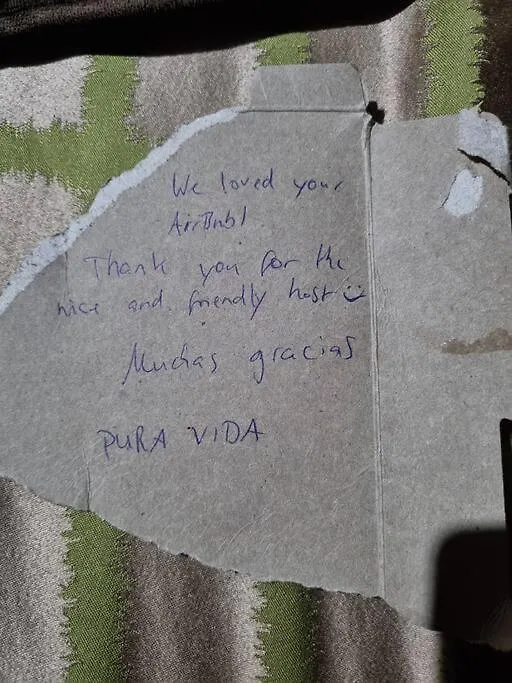 We loved your
AirBnb!
Thank you for the
nice and friendly host :)
Muchas gracias
PURA VIDA